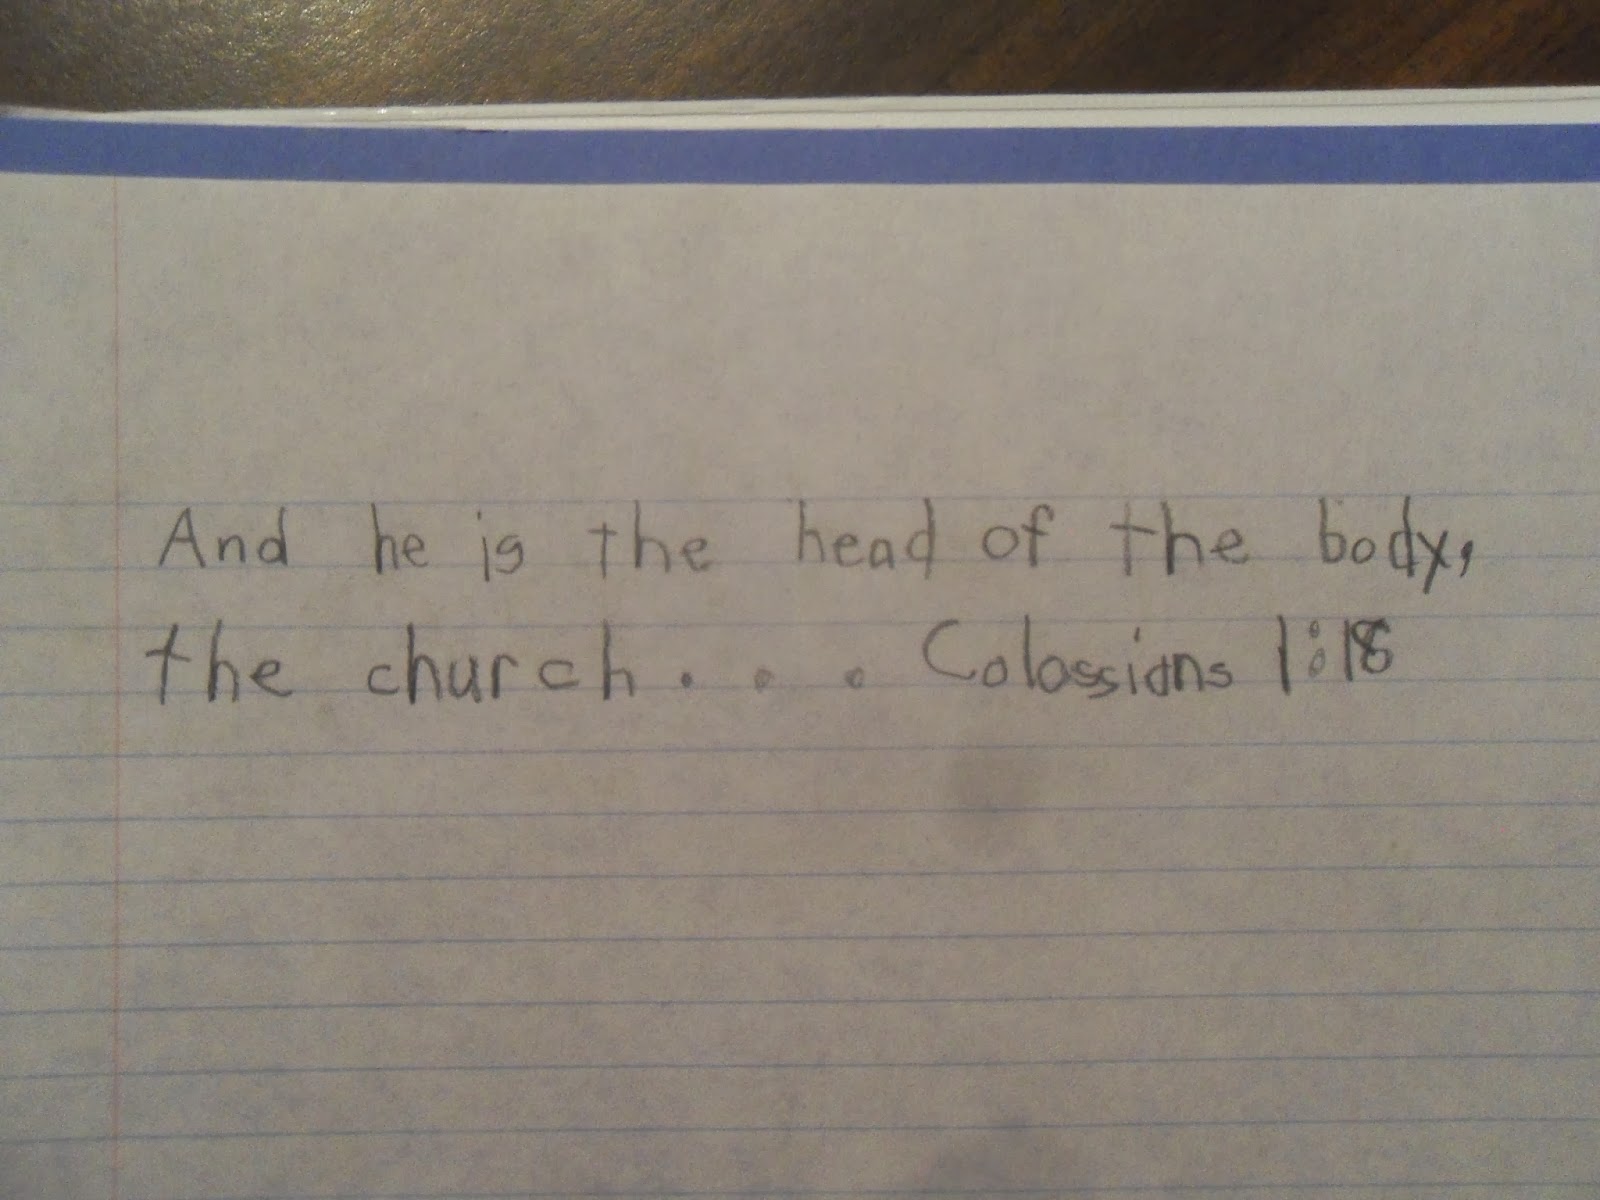 And he is the head of the body,
the church. . . Colossians 1:18